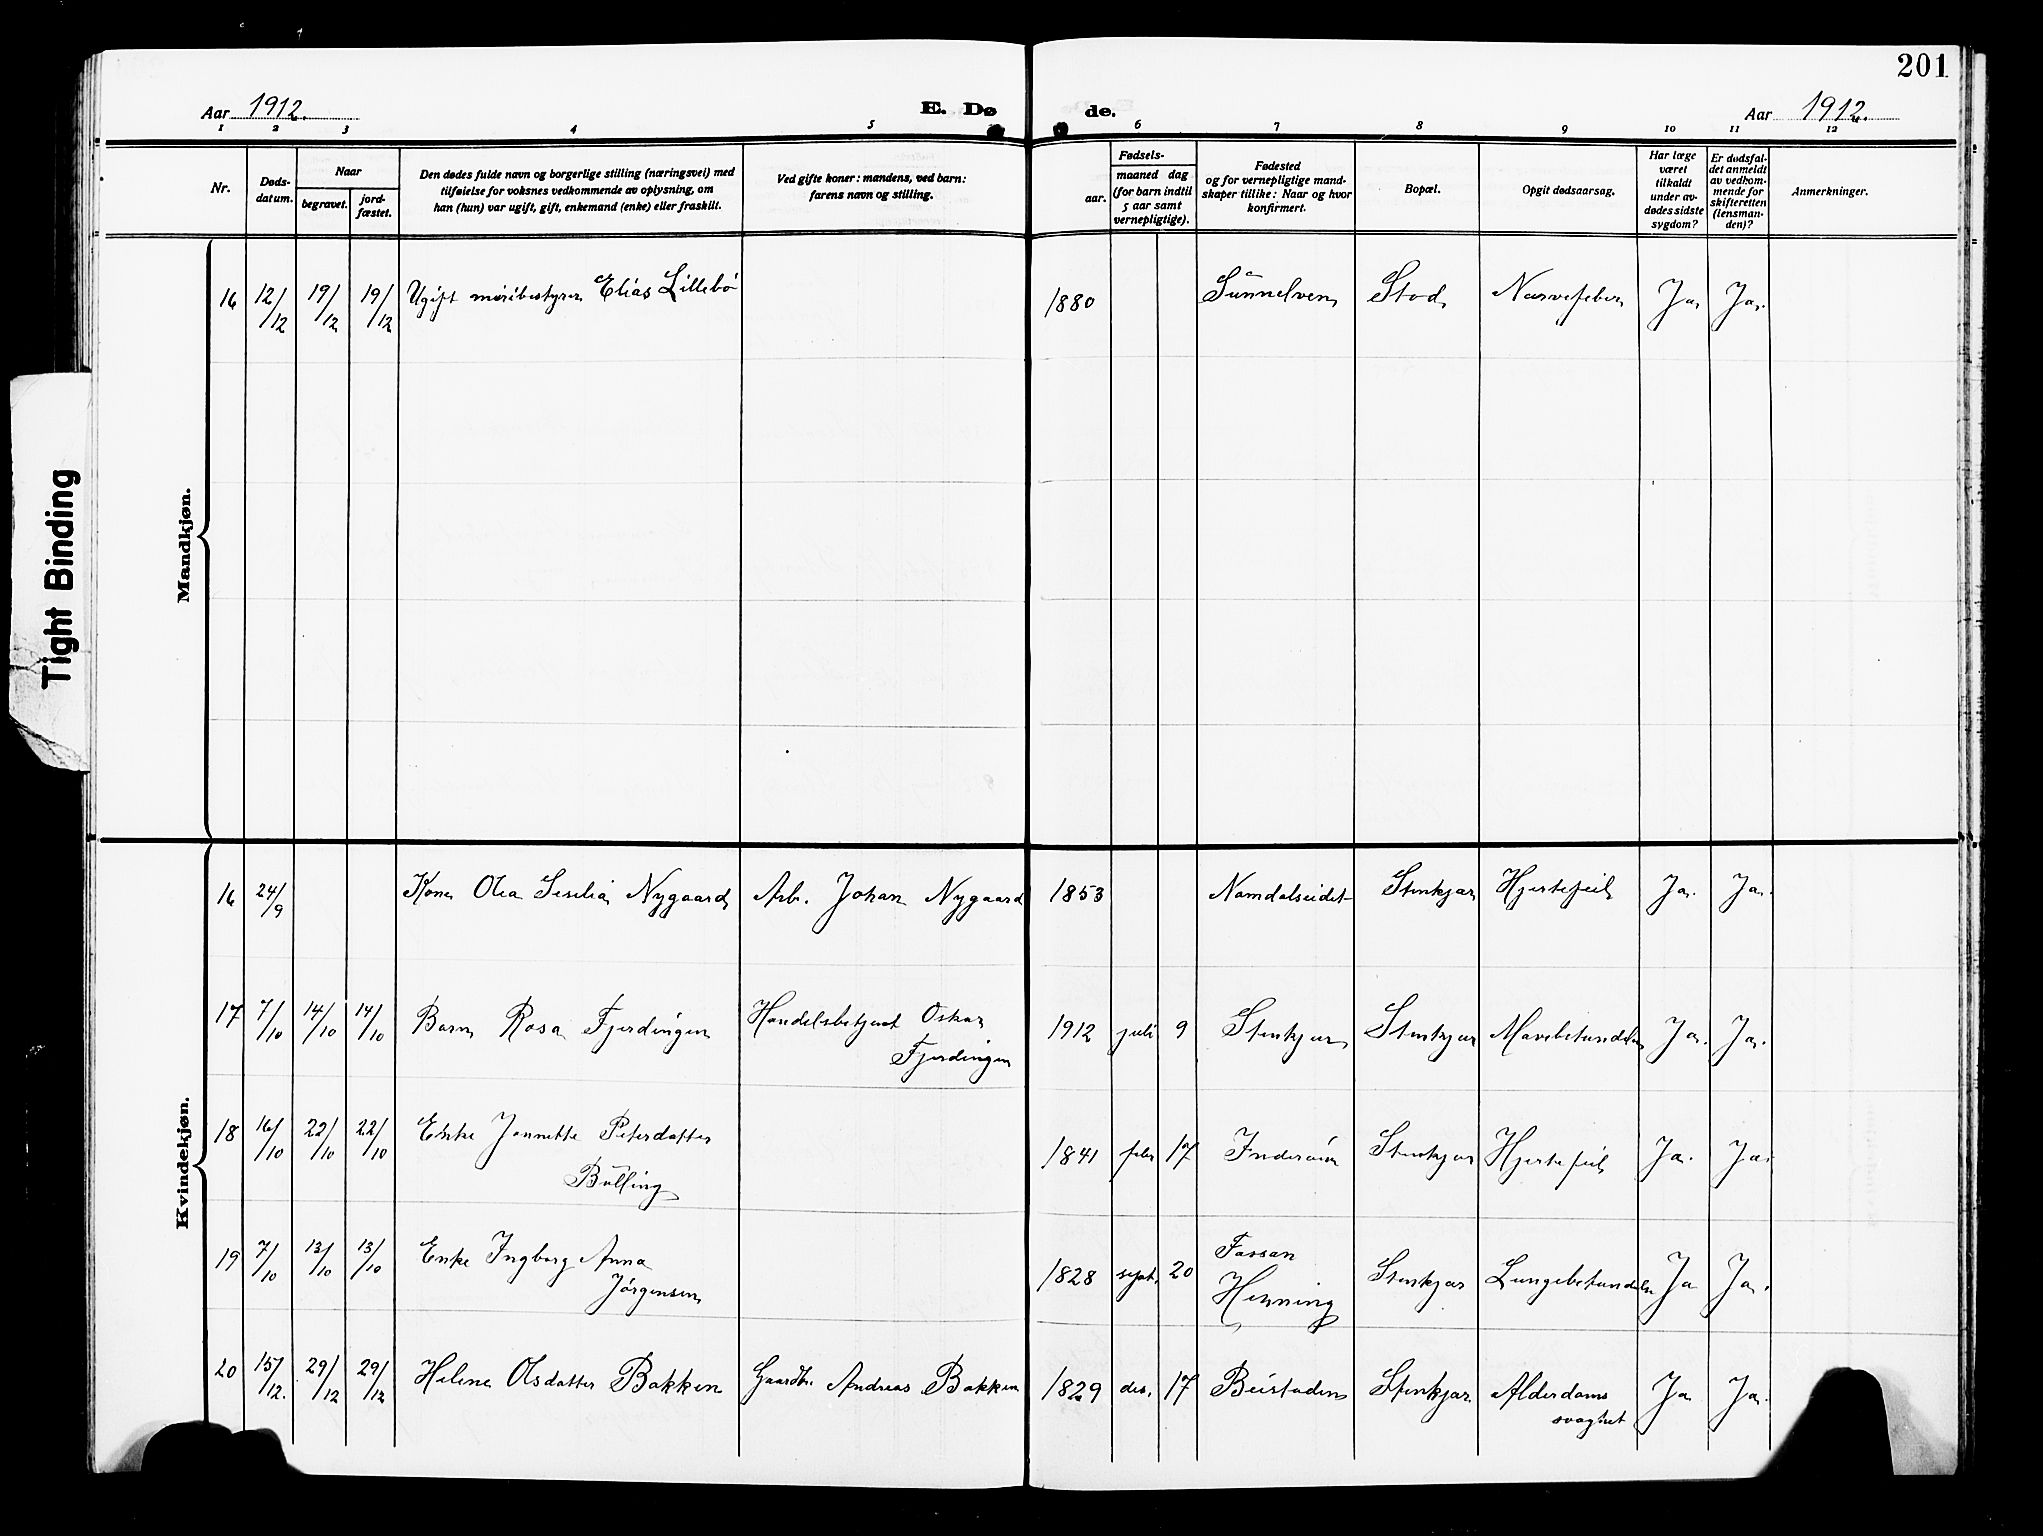 201
Aar 1912.
E. Dø
de.
Aar 1912.
1 2 3 4 5 6 7 8 9 10 11 12
Nr.
Døds-
datum.
Naar
begravet.
jord-
fæstet.
Den dødes fulde navn og borgerlige stilling (næringsvei) med
tilføielse for voksnes vedkommende av oplysning, om
han (hun) var ugift, gift, enkemand (enke) eller fraskilt.
Ved gifte koner: mandens, ved barn:
farens navn og stilling.
Fødsels-
aar.
maaned dag
(for barn indtil
5 aar samt
vernepligtige).
Fødested
og for vernepligtige mand-
skaper tillike: Naar og hvor
konfirmert.
Bopæl.
Opgit dødsaarsag.
Har læge
været
tilkaldt
under av-
dødes sidste
sygdom?
Er dødsfal-
det anmeldt
av vedkom-
mende for
skifteretten
(lensman-
den)?
Anmerkninger.
Tight Binding
Mandkjøn.
16 12/12 19/12 19/12 Ugift meieribestyrer Elias Lillebø 1880 Sunnelven Stod Nervefeber Ja Ja.
Kvindekjøn.
16 24/9 Kone Olea Sesilia Nygaard Arb. Johan Nygaard 1853 Namdalseidet Stenkjær Hjertefeil Ja. Ja.
17 7/10 14/10 14/10 Barn Rosa Fjerdingen Handelsbetjent Oskar
Fjerdingen 1912 juli 9 Stenkjær Stenkjær Mavebetændelse Ja. Ja.
18 16/10 22/10 22/10 Enke Jannette Petersdatter
Bülling 1841 febr 17 Inderøien Stenkjær Hjertefeil Ja. Ja.
19 7/10 13/10 13/10 Enke Ingborg Anna
Jørgensen 1828 sept. 20 Fossan
Henning Stenkjær Lungebetændelse Ja Ja.
20 15/12. 29/12 29/12 Helene Olsdatter Bakken Gaardbr. Andreas Bakken 1829 des. 17 Beistaden Stenkjær Alderdoms
svaghet Ja Ja.